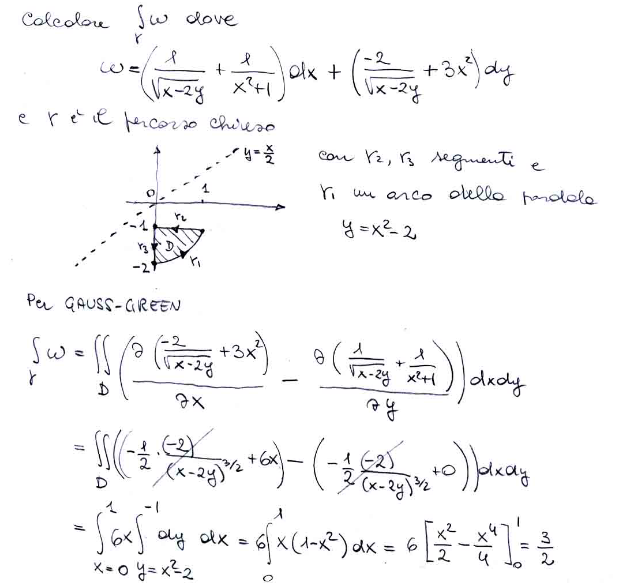 Calcolare ∫γ ω dove
ω = (1/√(x-2y) + 1/(x²+1)) dx + (-2/√(x-2y) + 3x²) dy
e γ è il percorso chiuso
y = x/2
0 1
-1 γ2
γ3 D
-2 γ1
con γ2, γ3 segmenti e
γ1 un arco della parabola
y = x² - 2
Per GAUSS-GREEN
∫γ ω = ∬D (∂(-2/√(x-2y) + 3x²)/∂x - ∂(1/√(x-2y) + 1/(x²+1))/∂y) dxdy
= ∬D ((-1/2 · (-2)/(x-2y)^3/2 + 6x) - (-1/2 (-2)/(x-2y)^3/2 + 0)) dxdy
= ∫_{x=0}^{1} 6x ∫_{y=x²-2}^{-1} dy dx = 6∫_0^1 x(1-x²) dx = 6 [x²/2 - x⁴/4]_0^1 = 3/2